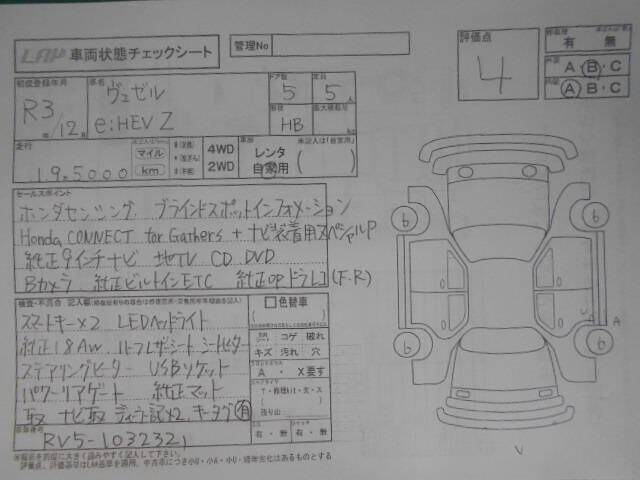 LAP 車両状態チェックシート
管理No
評価点
4
有 無
A・B・C
A・B・C
初度登録年月
R3年/12月
車名
ヴェゼル
e:HEV Z
ドア数
5
定員
5人
形状
HB
走行
19.5000
マイル
km
4WD
2WD
車歴
レンタ
自家用
セールスポイント
ホンダセンシング ブラインドスポットインフォメーション
Honda CONNECT for Gathers + ナビ装着用スペシャルP
純正9インチナビ 地TV CD DVD
Bカメラ 純正ビルトインETC 純正OPドラレコ(F・R)
スマートキー×2 LEDヘッドライト
純正18AW ハーフレザーシート シートヒーター
ステアリングヒーター USBソケット
パワーリアゲート 純正マット
取 ナビ取 ディーラー記×2 キータグ有
□色替車
コゲ 破れ
キズ 汚れ 穴
A ・ X要す
残り山
有・無 有・無
車台番号
RV5-1032321
6
6
6
6
U
A
A
U